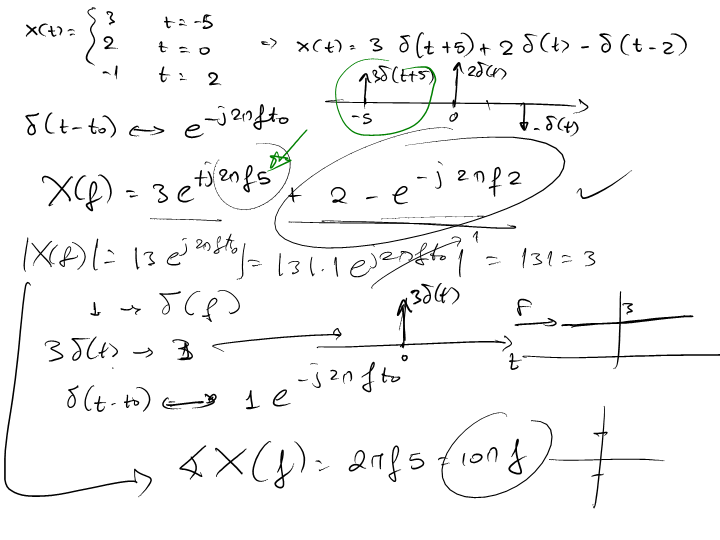 x(t) = { 3 t = -5
2 t = 0 => x(t) = 3 δ(t+5) + 2 δ(t) - δ(t-2)
-1 t = 2
3δ(t+5) 2δ(t)
-5 0 -δ(t)
δ(t-to) ↔ e^{-j2πfto}
X(f) = 3 e^{+j2πf5} + 2 - e^{-j2πf2} ✓
|X(f)| = |3 e^{j2πfto}| = |3|.|e^{j2πfto}|^1 = |3| = 3
1 → δ(f)
3δ(t) F 3
3δ(t) → 3
0 t
δ(t-to) ↔ 1 e^{-j2πfto}
∡X(f) = 2πf5 = 10πf